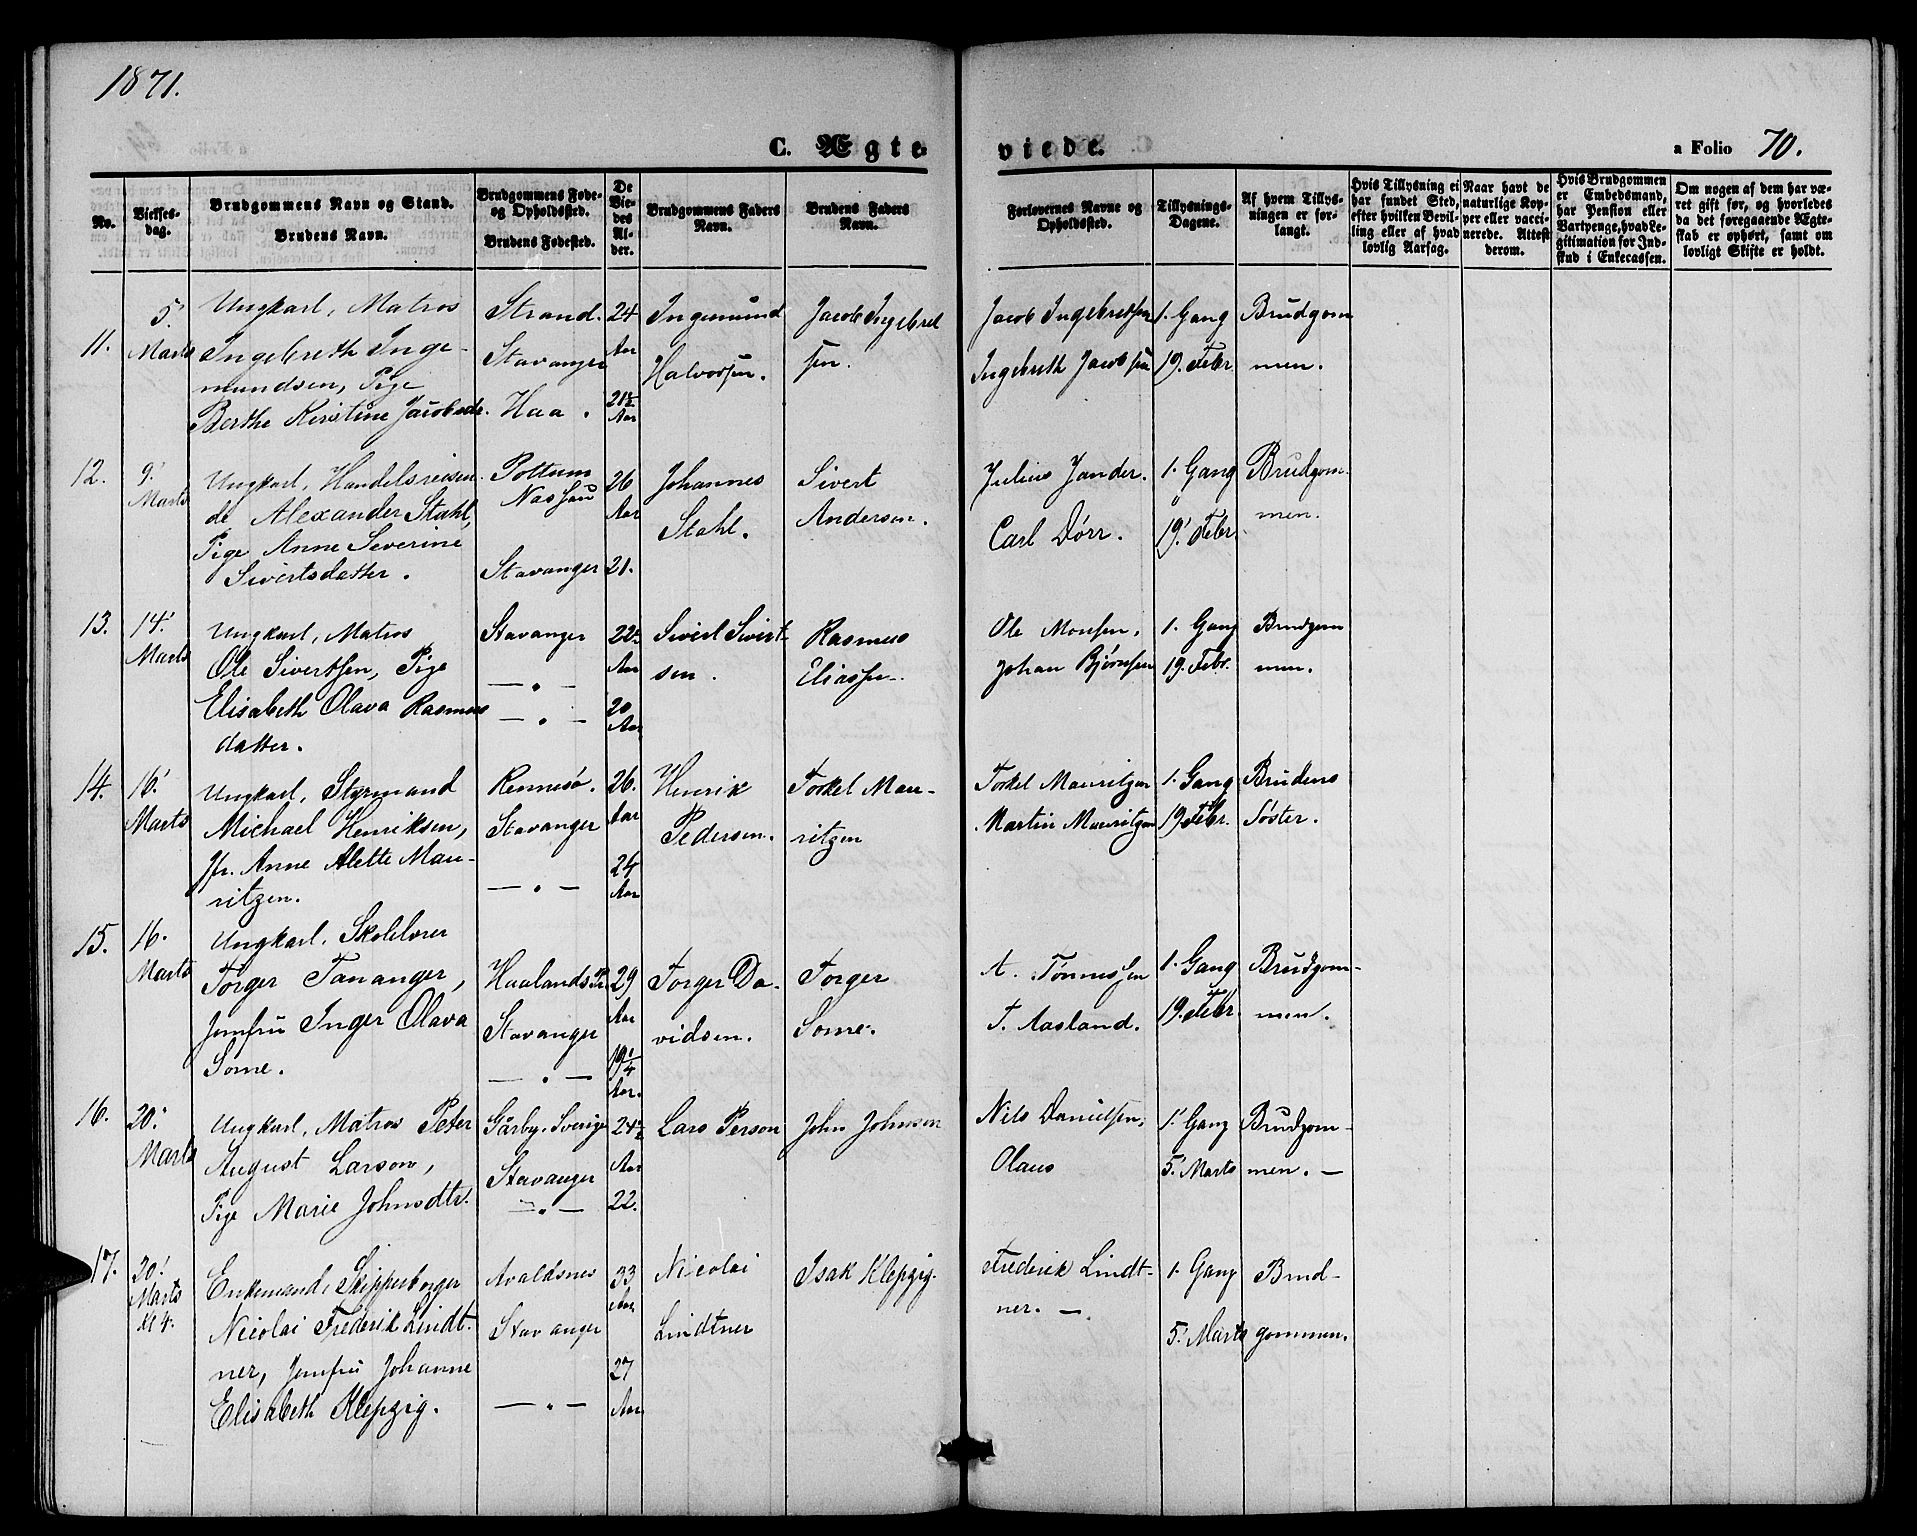 1871.
C. Ægteviede.
a Folio 70.
No.
Vielsesdag.
Brudgommens Navn og Stand.
Brudens Navn.
Brudgommens Føde- og Opholdssted.
Brudens Fødested.
De Viedes Alder.
Brudgommens Faders Navn.
Brudens Faders Navn.
Forlovernes Navne og Opholdssted.
Tillysnings-Dagene.
Af hvem Tillysningen er forlangt.
Hvis Tillysning ei har fundet Sted, efter hvilken Bevilling eller af hvad lovlig Aarsag.
Naar havt de naturlige Kopper eller vaccinerede. Attest derom.
Hvis Brudgommen er Embedsmand, har Pension eller Vartpenge, hvad Legitimation for Indskud i Enkecassen.
Om nogen af dem har været gift før, og hvorledes da det foregaaende Ægteskab er ophørt, samt om lovligt Skifte er holdt.
11.
5'
Marts
Ungkarl, Matros
Ingebreth Inge-
mundsen, Pige
Berthe Kirstine Jacobsdr.
Strand.
Stavanger
Haa.
24
Aar
21½
Aar
Ingemund
Halvorsen.
Jacob Ingebret
sen.
Jacob Ingebretsen
Ingebreth Jacobsen
1. Gang
19. Febr.
Brudgom
men.
12.
9'
Marts
Ungkarl, Handelsreisen
de Alexander Stahl,
Pige Anne Severine
Sivertsdatter.
Pottum
Nassau
Stavanger
26
Aar
21.
Johannes
Stahl.
Sivert
Andersen.
Julius Jander.
Carl Dörr.
1. Gang
19' Febr.
Brudgom-
men.
13.
14'
Marts
Ungkarl, Matros
Ole Sivertsen, Pige
Elisabeth Olava Rasmus
datter.
Stavanger
— " —
— " —
22
Aar
20
Aar
Sivert Sivert-
sen.
Rasmus
Eliassen.
Ole Monsen.
Johan Bjørnsen
1. Gang
19. Febr.
Brudgom
men.
14.
16'
Marts
Ungkarl, Styrmand
Michael Henriksen,
Jfr. Anne Alette Mau-
ritzen.
Rennesø.
Stavanger
— " —
26.
Aar
24
Aar
Henrik
Pedersen.
Torkel Mau-
ritzen
Torkel Mauritzen
Martin Mauritzen
1. Gang
19 Febr.
Brudens
Søster.
15.
16.
Marts
Ungkarl, Skolelærer
Torger Tananger,
Jomfru Inger Olava
Some.
Haalands Pr.
Stavanger
— " —
29
Aar
19¼
Aar.
Torger Da-
vidsen.
Torger
Some.
A. Tønnessen
T. Aasland.
1. Gang
19. Febr.
Brudgom-
men.
16.
20'
Marts
Ungkarl, Matros Peter
August Larson,
Pige Marie Johnsdtr.
Gårby. Sverige
Stavanger
— " —
24½
Aar
22.
Lars Person
John Johnsen
Nils Danielsen,
Olaus
1' Gang
5' Marts
Brudgom-
men. —
17.
20'
Marts
Kl 4.
Enkemand, Skipperborger
Nicolai Frederik Lindt-
ner, Jomfru Johanne
Elisabeth Klepzig.
Avaldsnes
Stavanger
— " —
33
Aar
27
Aar
Nicolai
Lindtner
Isak Klepzig.
Frederik Lindt-
ner. —
1. Gang
5' Marts
Brud-
gommen.